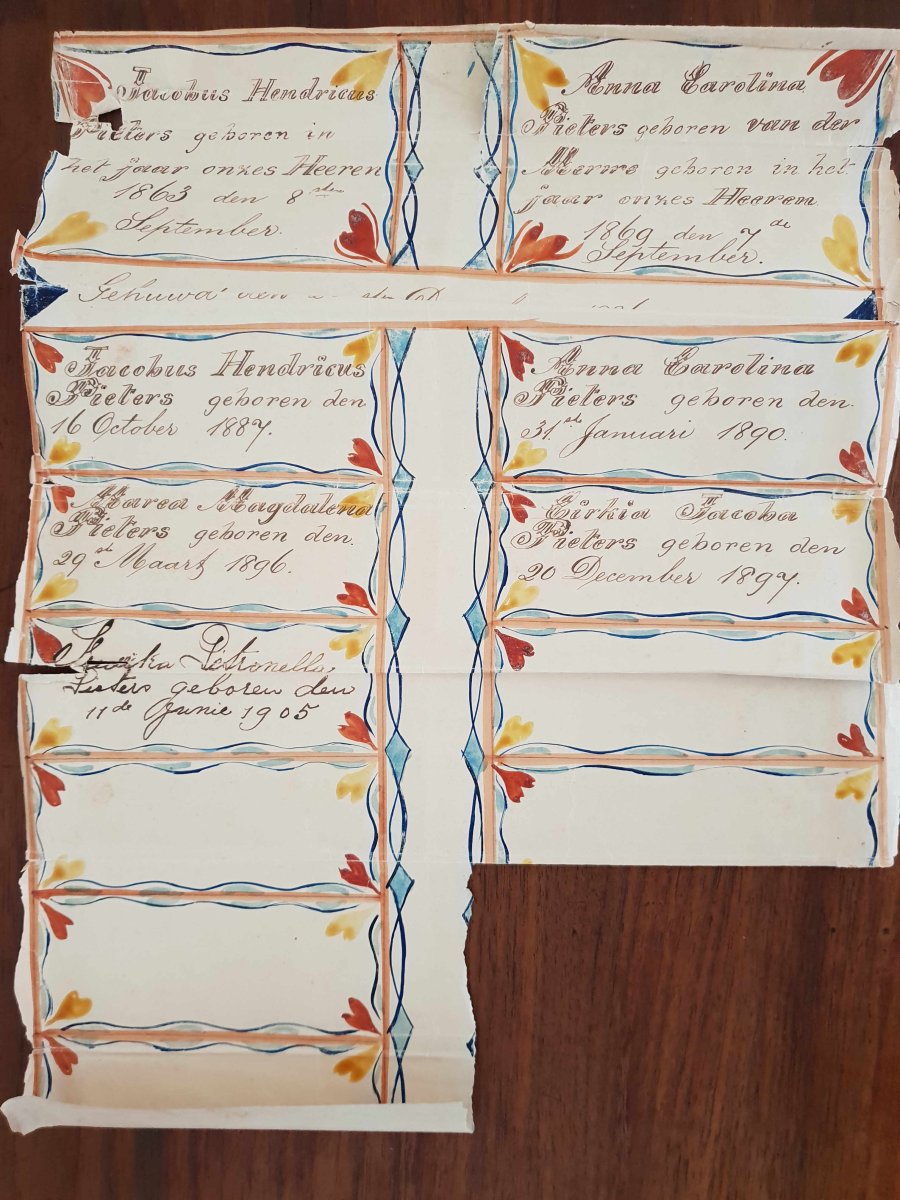 Jacobus Hendricus
Pieters geboren in
het jaar onzes Heeren
1863 den 8 sten
September.
Anna Carolina
Pieters geboren van der
Merwe geboren in het
jaar onzes Heeren
1869 den 7 de
September.
Jacobus Hendricus
Pieters geboren den
16 October 1887.
Anna Carolina
Pieters geboren den.
31. st Januari 1890.
Marea Magdalena
Pieters geboren den.
29 st Maart 1896.
Cirkia Jacoba
Pieters geboren den
20 December 1897.
Petronella
Pieters geboren den
11 de Junie 1905